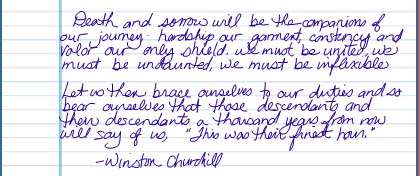 Death and sorrow will be the companions of
our journey. hardship our garment, constency and
valor our only shield. we must be united, we
must be undaunted, we must be inflexible
Let us then brace ourselves to our duties and so
bear ourselves that those descendants and
their descendants a thousand years from now
will say of us, "This was their finest hour."
-Winston Churchill